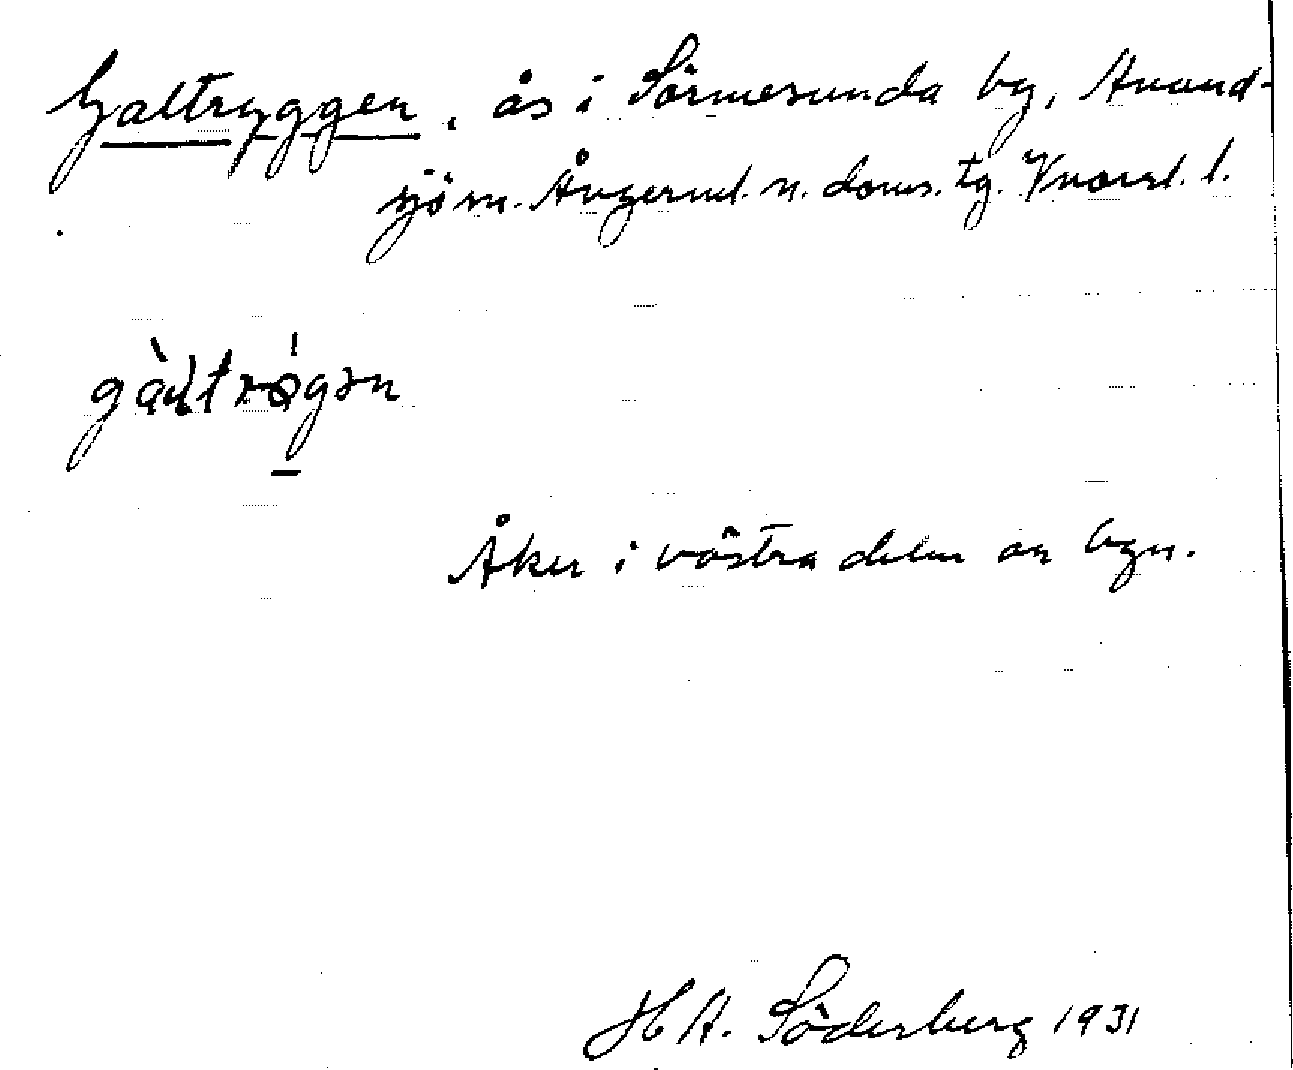 Galtryggen, ås i Sörmesunda by, Anund-
sjö sn. Ångerml. n. doms. tg. Vnorrl. l.
gàltrǿgən
Åker i västra delen av byn.
H A. Söderberg 1931